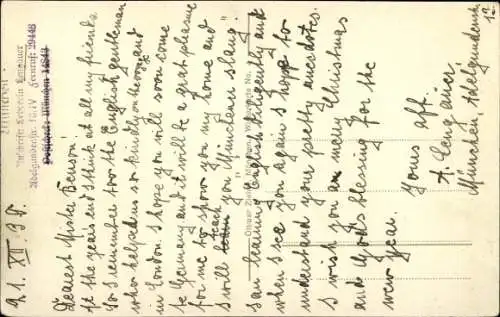 21. XII. 38.
Dearest Mister Benson!
At the years end I think at all my friends
So I remember too the English gentleman
who helped us so kindly on the voy and
in London. I hope you will soon come
to Germany and it will be a great pleasure
for me to show you my home and
I will teach you "Münchean slang".
I am learning English diligently and
when I see you again I hope to
understand your pretty anecdotes.
I wish you a merry Christmas
and Gods blessing for the
new year.
Yours aff.
A.
München, Adelgundenstr.
12
Zimmerei
Adelgundenstr. 15/IV Fernruf: 29448
Postscheck: München 14849
Ottmar Zieher, München, Wittelsbacherpl. No.